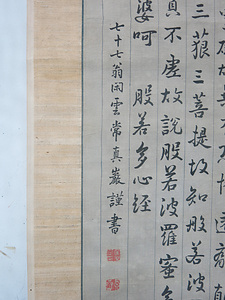 三藐三菩提故知般若波
真不虛故說般若波羅蜜多
婆呵 般若多心經
七十七翁閑雲常真巖謹書